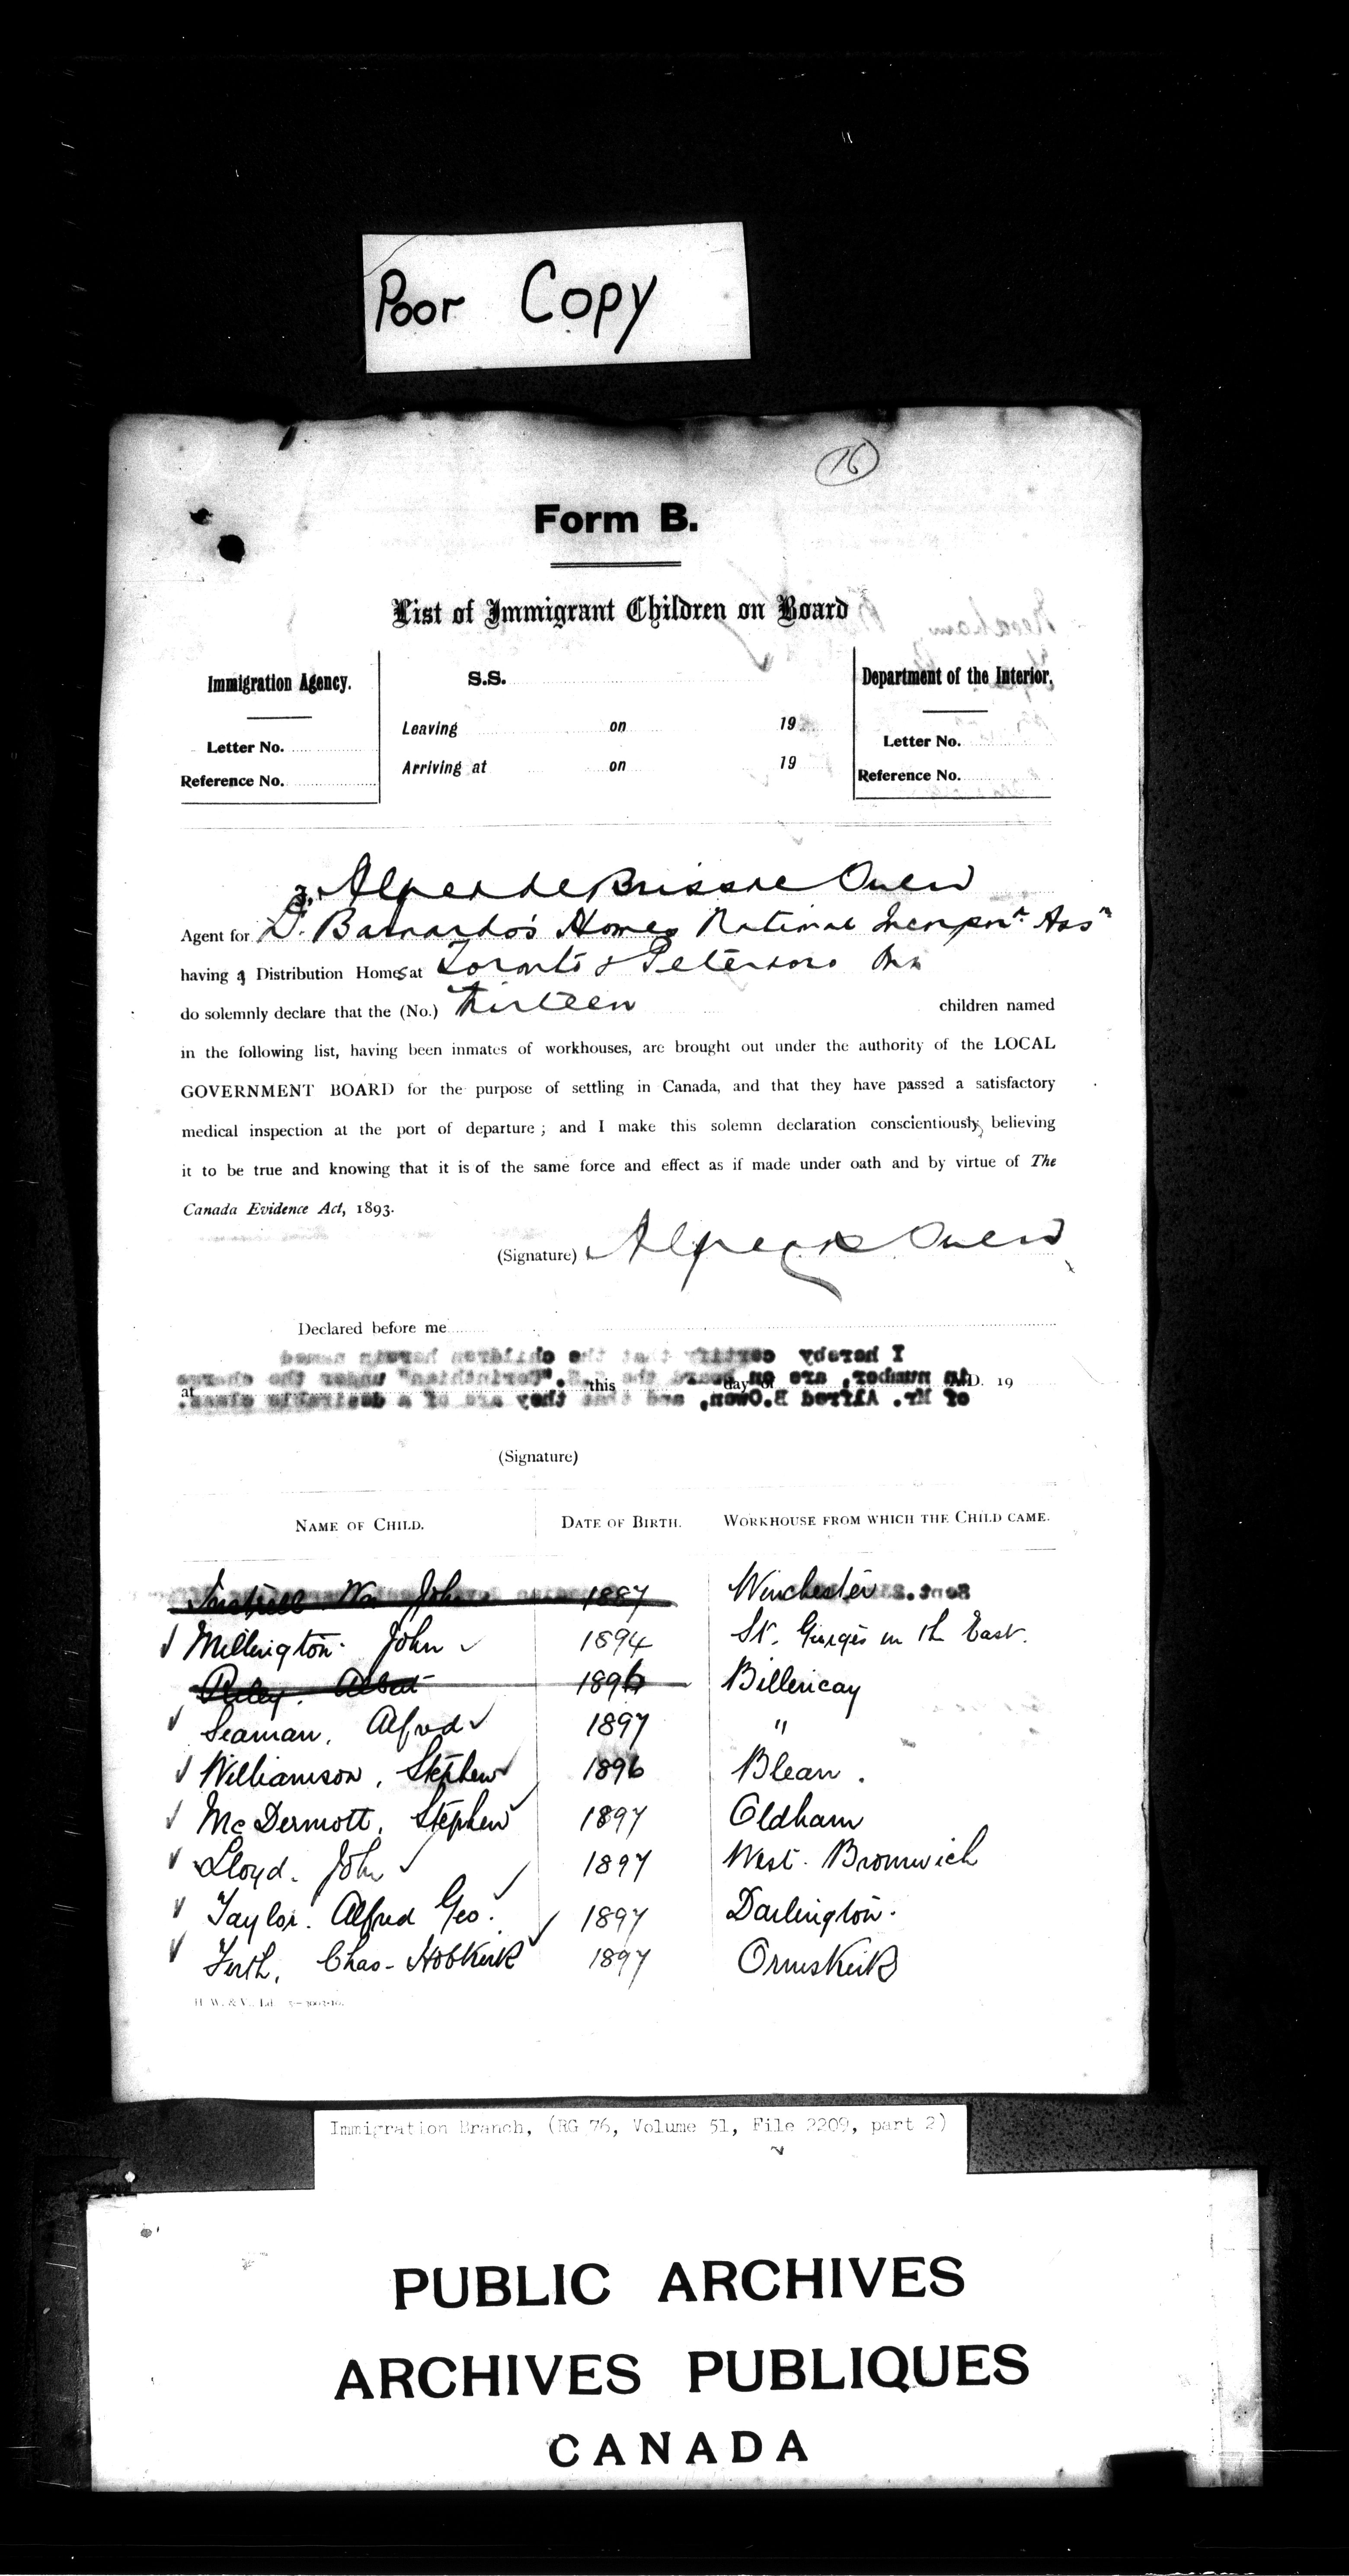 Poor Copy
76
Form B.
List of Immigrant Children on Board
Immigration Agency.
Letter No.
Reference No.
S.S.
Leaving on 19
Arriving at on 19
Department of the Interior.
Letter No.
Reference No.
I, Alfred de Brissac Owen
Agent for Dr. Barnardo's Homes National Incorport. Assn
having a Distribution Homes at Toronto & Peterboro Ont
do solemnly declare that the (No.) Thirteen children named
in the following list, having been inmates of workhouses, are brought out under the authority of the LOCAL
GOVERNMENT BOARD for the purpose of settling in Canada, and that they have passed a satisfactory
medical inspection at the port of departure; and I make this solemn declaration conscientiously believing
it to be true and knowing that it is of the same force and effect as if made under oath and by virtue of The
Canada Evidence Act, 1893.
(Signature) Alfred Owen
Declared before me
I hereby certify that the children herein named
in number, are on board the S.S. "Corinthian" under the charge
of Mr. Alfred B. Owen, and that they are of a desirable class.
at this day of A.D. 19
(Signature)
NAME OF CHILD. DATE OF BIRTH. WORKHOUSE FROM WHICH THE CHILD CAME.
Wm John 1887 Winchester
Millington. John 1894 St. Georges in th East.
Riley. Albert 1896 Billericay
Seaman, Alfred 1897 "
Williamson, Stephen 1896 Blean.
McDermott, Stephen 1897 Oldham
Lloyd. John 1897 West. Bromwich
Taylor. Alfred Geo. 1897 Darlington.
Firth, Chas- Hobkirk 1897 Ormskirk
Immigration Branch, (RG 76, Volume 51, File 2209, part 2)
PUBLIC ARCHIVES
ARCHIVES PUBLIQUES
CANADA